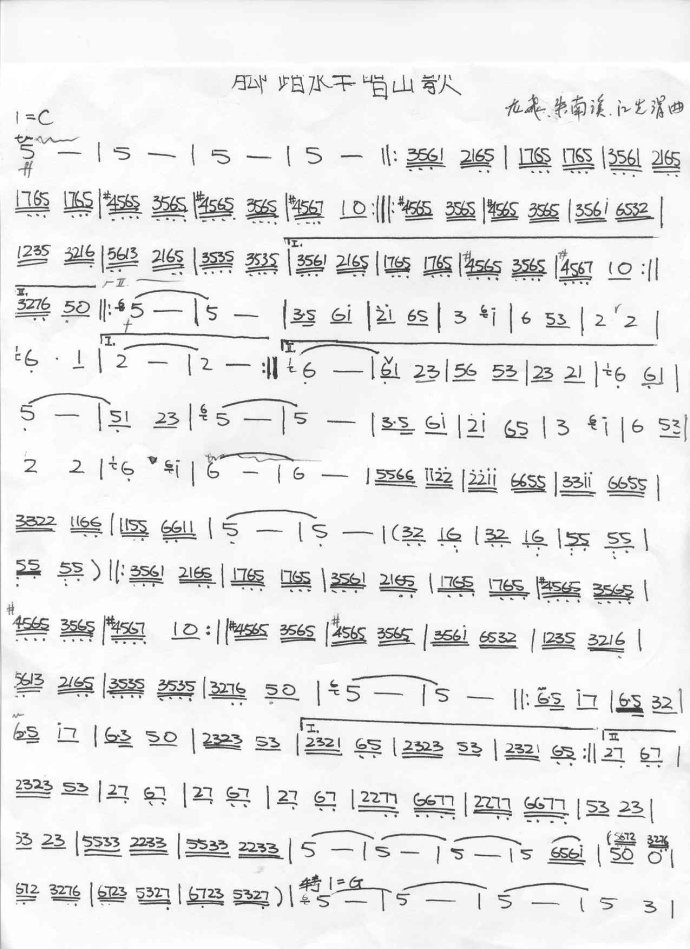 脚踏水车唱山歌
1=C 龙飞、朱南溪、江先渭曲
tr
5 — | 5 — | 5 — | 5 — ||: 3561 2165 | 1765 1765 | 3561 2165
1765 1765 | #4565 3565 | #4565 3565 | #4567 10 :||: #4565 3565 | #4565 3565 | 356i 6532 |
1235 3216 | 5613 2165 | 3535 3535 | I. 3561 2165 | 1765 1765 | #4565 3565 | #4567 10 :||
II. 3276 50 ||: 5 — | 5 — | 3·5 6i | 2i 65 | 3 i | 6 53 | 2 2 |
6 · 1 | I. 2 — | 2 — :|| II. 6 — | 61 23 | 56 53 | 23 21 | 6 61 |
5 — | 51 23 | 5 — | 5 — | 3·5 6i | 2i 65 | 3 i | 6 53 |
2 2 | 6 i | 6 — | 6 — | 5566 1122 | 2211 6655 | 3311 6655 |
3322 1166 | 1155 6611 | 5 — | 5 — | (32 16 | 32 16 | 55 55 |
55 55 ) ||: 3561 2165 | 1765 1765 | 3561 2165 | 1765 1765 | #4565 3565 |
#4565 3565 | #4567 10 :|| #4565 3565 | #4565 3565 | 356i 6532 | 1235 3216 |
5613 2165 | 3535 3535 | 3276 50 | 5 — | 5 — ||: 6·5 i7 | 6·5 32 |
6·5 i7 | 6·3 50 | 2323 53 | I. 2321 65 | 2323 53 | 2321 65 :|| II. 27 67 |
2323 53 | 27 67 | 27 67 | 27 67 | 2277 6677 | 2277 6677 | 53 23 |
53 23 | 5533 2233 | 5533 2233 | 5 — | 5 — | 5 — | 5 656i | (5672 3276 50 0 |
672 3276 | 6723 5327 | 6723 5327 ) | 转1=G 5 — | 5 — | 5 — | 5 3 |